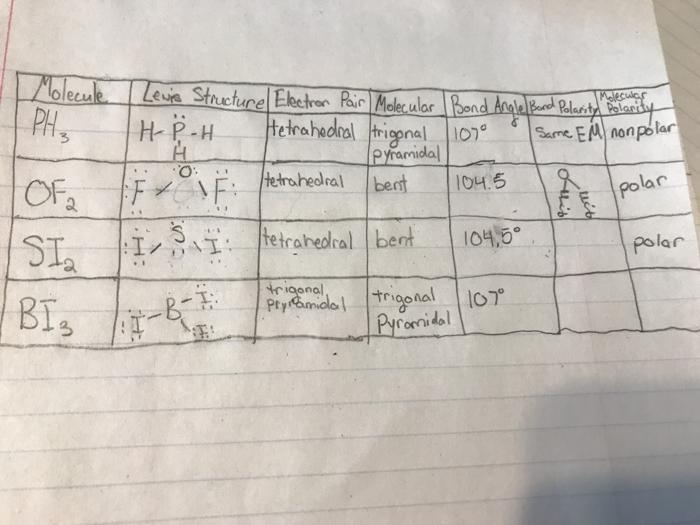 Molecule Lewis Structure Electron Pair Molecular Bond Angle Bond Polarity Molecular Polarity
PH3 H-P-H tetrahedral trigonal 107° Same EM nonpolar
H pyramidal
OF2 F O F tetrahedral bent 104.5 polar
SI2 I S I tetrahedral bent 104,5° polar
BI3 I-B-I trigonal trigonal 107°
I pryramidal Pyramidal